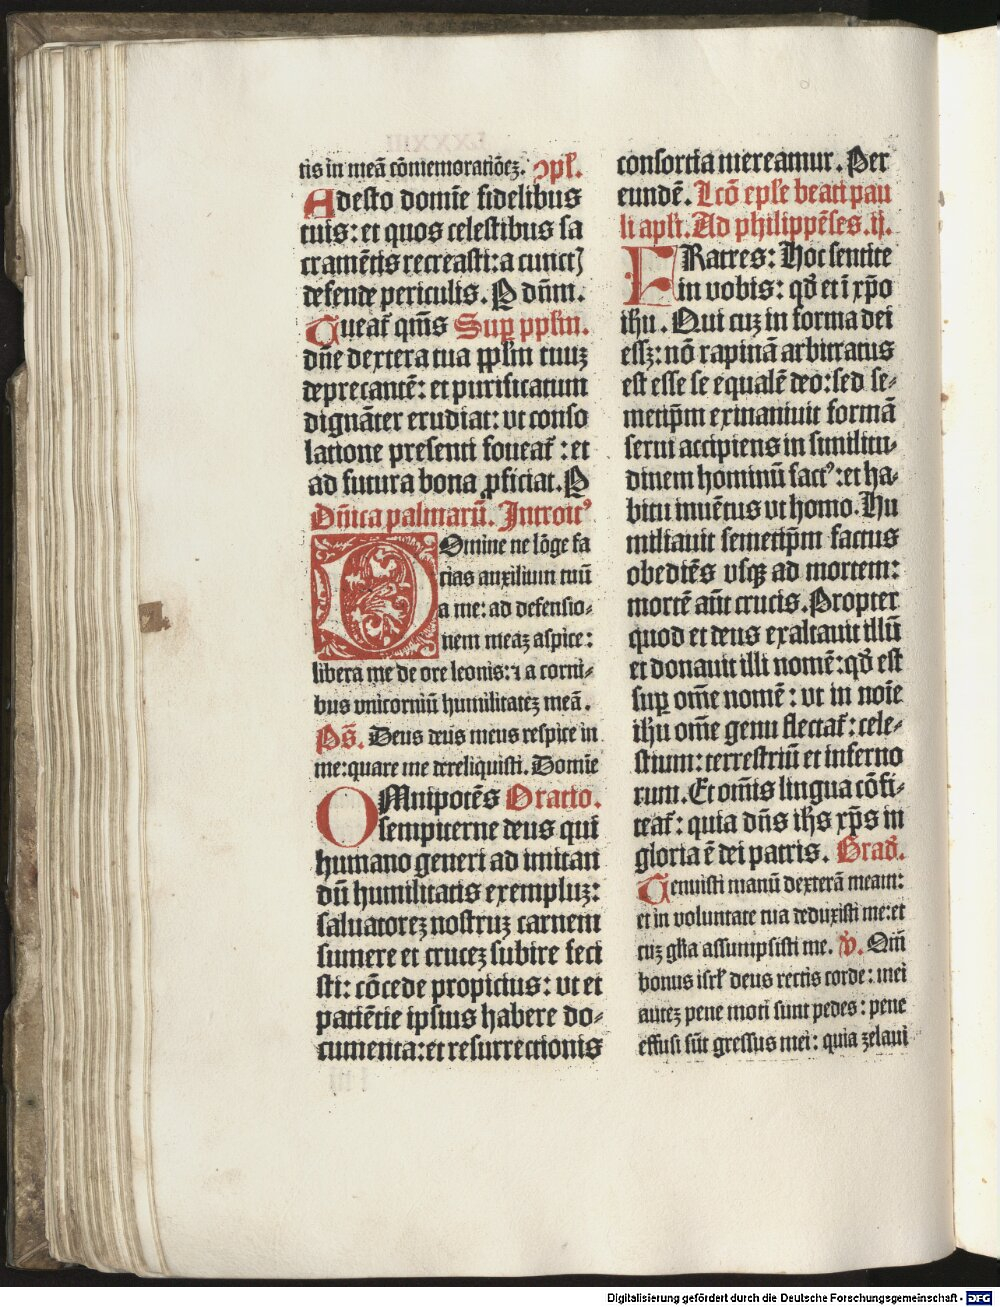 tis in meā cōmemoratiōez. ↄpl̃.
Adesto domīe fidelibus
tuis: et quos celestibus sa
cramētis recreasti: a cunctꝭ
defende periculis. P dn̄m.
Tueat̃ qm̄s Suꝑ pplm̄.
dn̄e dextera tua ꝓplm̄ tuuꝫ
deprecantē: et purificatum
dignāter erudiat: vt conso
latione presenti foueat̃: et
ad futura bona ꝓficiat. P
Dn̄ica palmarū. Introitꝰ
Domine ne lōge fa
cias auxilium tuū
a me: ad defensio⸗
nem meaz aspice:
libera me de ore leonis: ⁊ a corni⸗
bus vnicorniū humilitatez meā.
Ps̄. Deus deus meus respice in
me: quare me dereliquisti. Domīe
OMnipotēs Oratio.
sempiterne deus qui
humano generi ad imitan
dū humilitatis exempluꝫ:
saluatoreꝫ nostruꝫ carnem
sumere et cruceꝫ subire feci
sti: cōcede propicius: vt et
patiētie ipsius habere do⸗
cumenta: et resurrectionis
consortia mereamur. Per
eundē. Lcō epl̃e beati pau
li apl̃i. Ad philippēses. ij.
FRatres: Hoc sentite
in vobis: qd̓ et ī xp̄o
ihu. Qui cuꝫ in forma dei
essꝫ: nō rapinā arbitratus
est esse se equalē deo: sed se⸗
metip̄m exinaniuit formā
serui accipiens in similitu⸗
dinem hominū factꝰ: et ha⸗
bitu inuētus vt homo. Hu
miliauit semetip̄m factus
obediēs vsqꝫ ad mortem:
mortē aūt crucis. Propter
quod et deus exaltauit illū
et donauit illi nomē: qd̓ est
suꝑ om̄e nomē: vt in noīe
ihu om̄e genu flectat̃: cele⸗
stium: terrestriū et inferno
rum. Et om̄is lingua cōfi⸗
teat̃: quia dn̄s ihs xp̄s in
gloria ē dei patris. Grad̓.
Tenuisti manū dexterā meam:
et in voluntate tua deduxisti me: et
cuꝫ gl̃ia assumpsisti me. ꝟ. Qm̄
bonus isrl̃ deus rectis corde: mei
auteꝫ pene moti sunt pedes: pene
effusi sūt gressus mei: quia zelaui
Digitalisierung gefördert durch die Deutsche Forschungsgemeinschaft - DFG